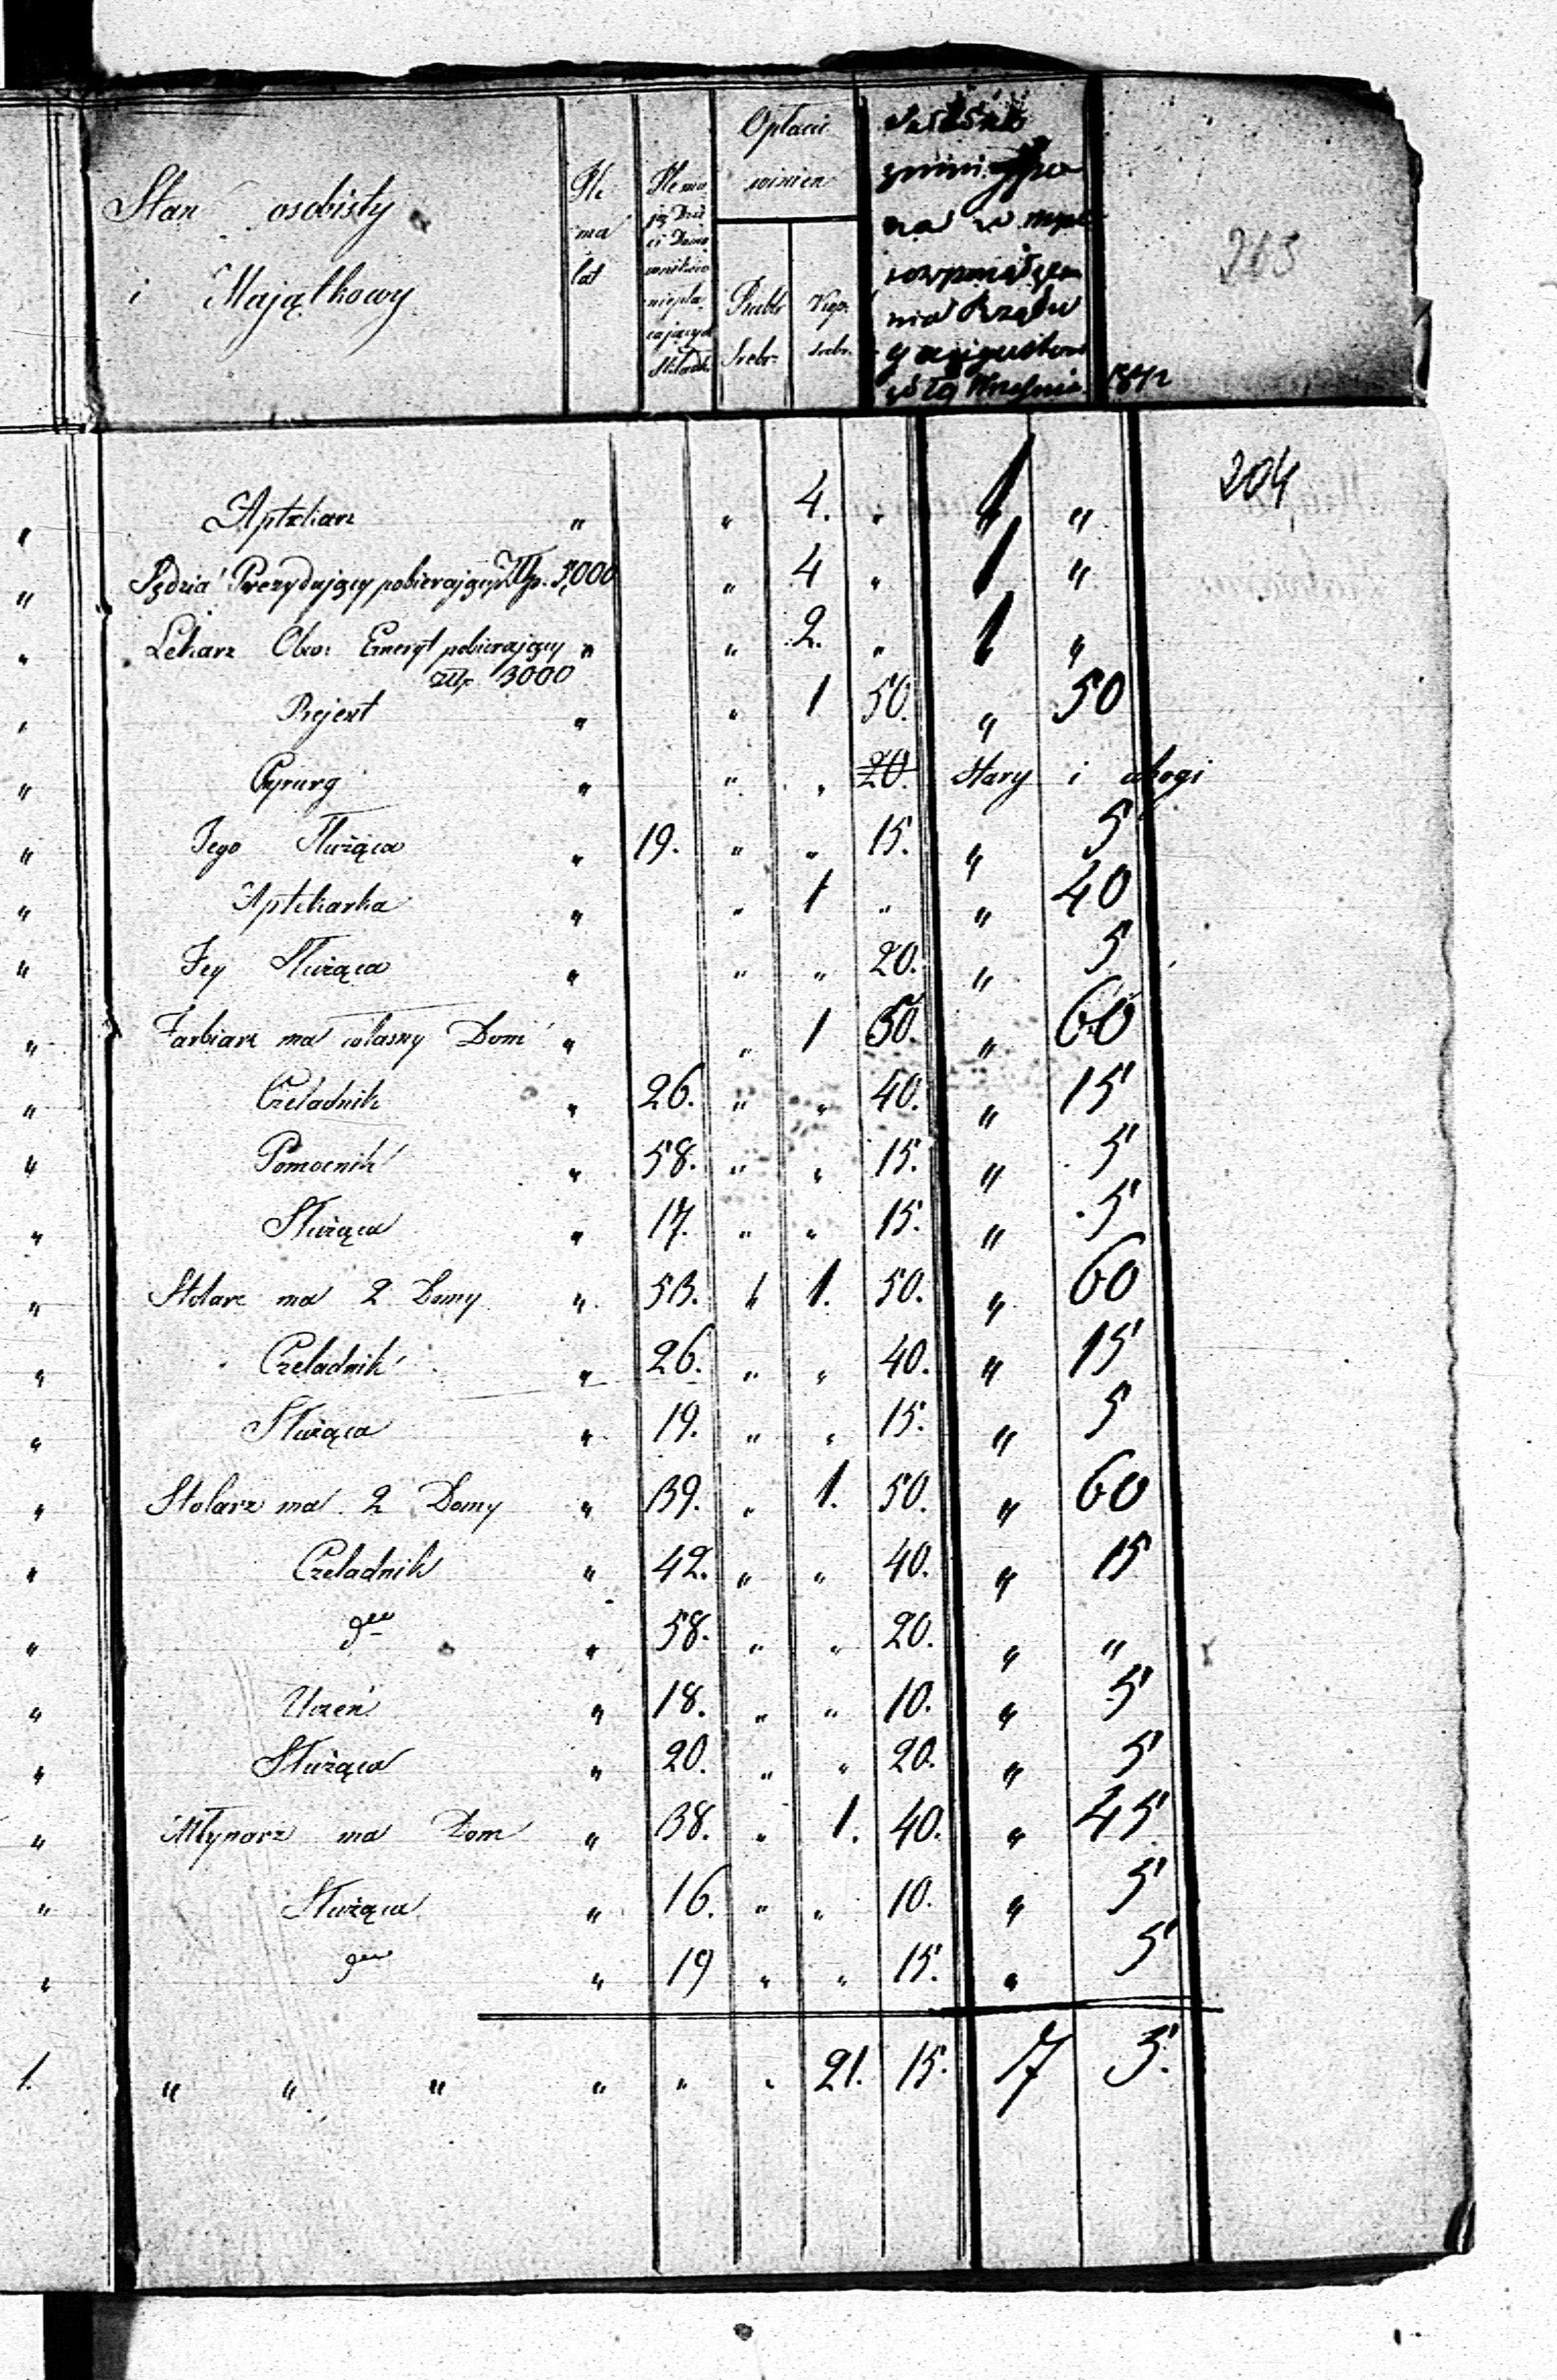 Stan osobisty
i Majątkowy
Ile
ma
lat
Ile ma
Opłacać
winien
Rubli
Srebr.
Kop.
srebr.
składka
zmniejszo
na w myśl
rozporządze
nia Rządu
Września 1842
205
204
" Aptekarz " " 4. " 1 "
" Sędzia Prezydujący pobierający Złp. 5,000 " 4 " 1 "
" Lekarz Obw: Emeryt pobierający " " 2. " 1 "
złp 3000
" Rejent " " 1 50. " 50
" Chyrurg " " " 20. Stary i ubogi
" Jego Służąca " 19. " " 15. " 5
" Aptekarka " " 1 " " 40
" Jey Służąca " " " 20. " 5
" Farbiarz ma własny Dom " " 1 50. " 60
" Czeladnik " 26. " " 40. " 15
" Pomocnik " 58. " " 15. " 5
" Służąca " 17. " " 15. " 5
" Stolarz ma 2 Domy " 53. " 1. 50. " 60
" Czeladnik " 26. " " 40. " 15
" Służąca " 19. " " 15. " 5
" Stolarz ma 2 Domy " 39. " 1. 50. " 60
" Czeladnik " 42. " " 40. " 15
" " 58. " " 20. " "
" Uczeń " 18. " " 10. " 5
" Służąca " 20. " " 20. " 5
" Młynarz ma Dom " 38. " 1. 40. " 45
" Służąca " 16. " " 10. " 5
" " 19 " " 15. " 5
1. " " " " " " 21. 15. 7 5.